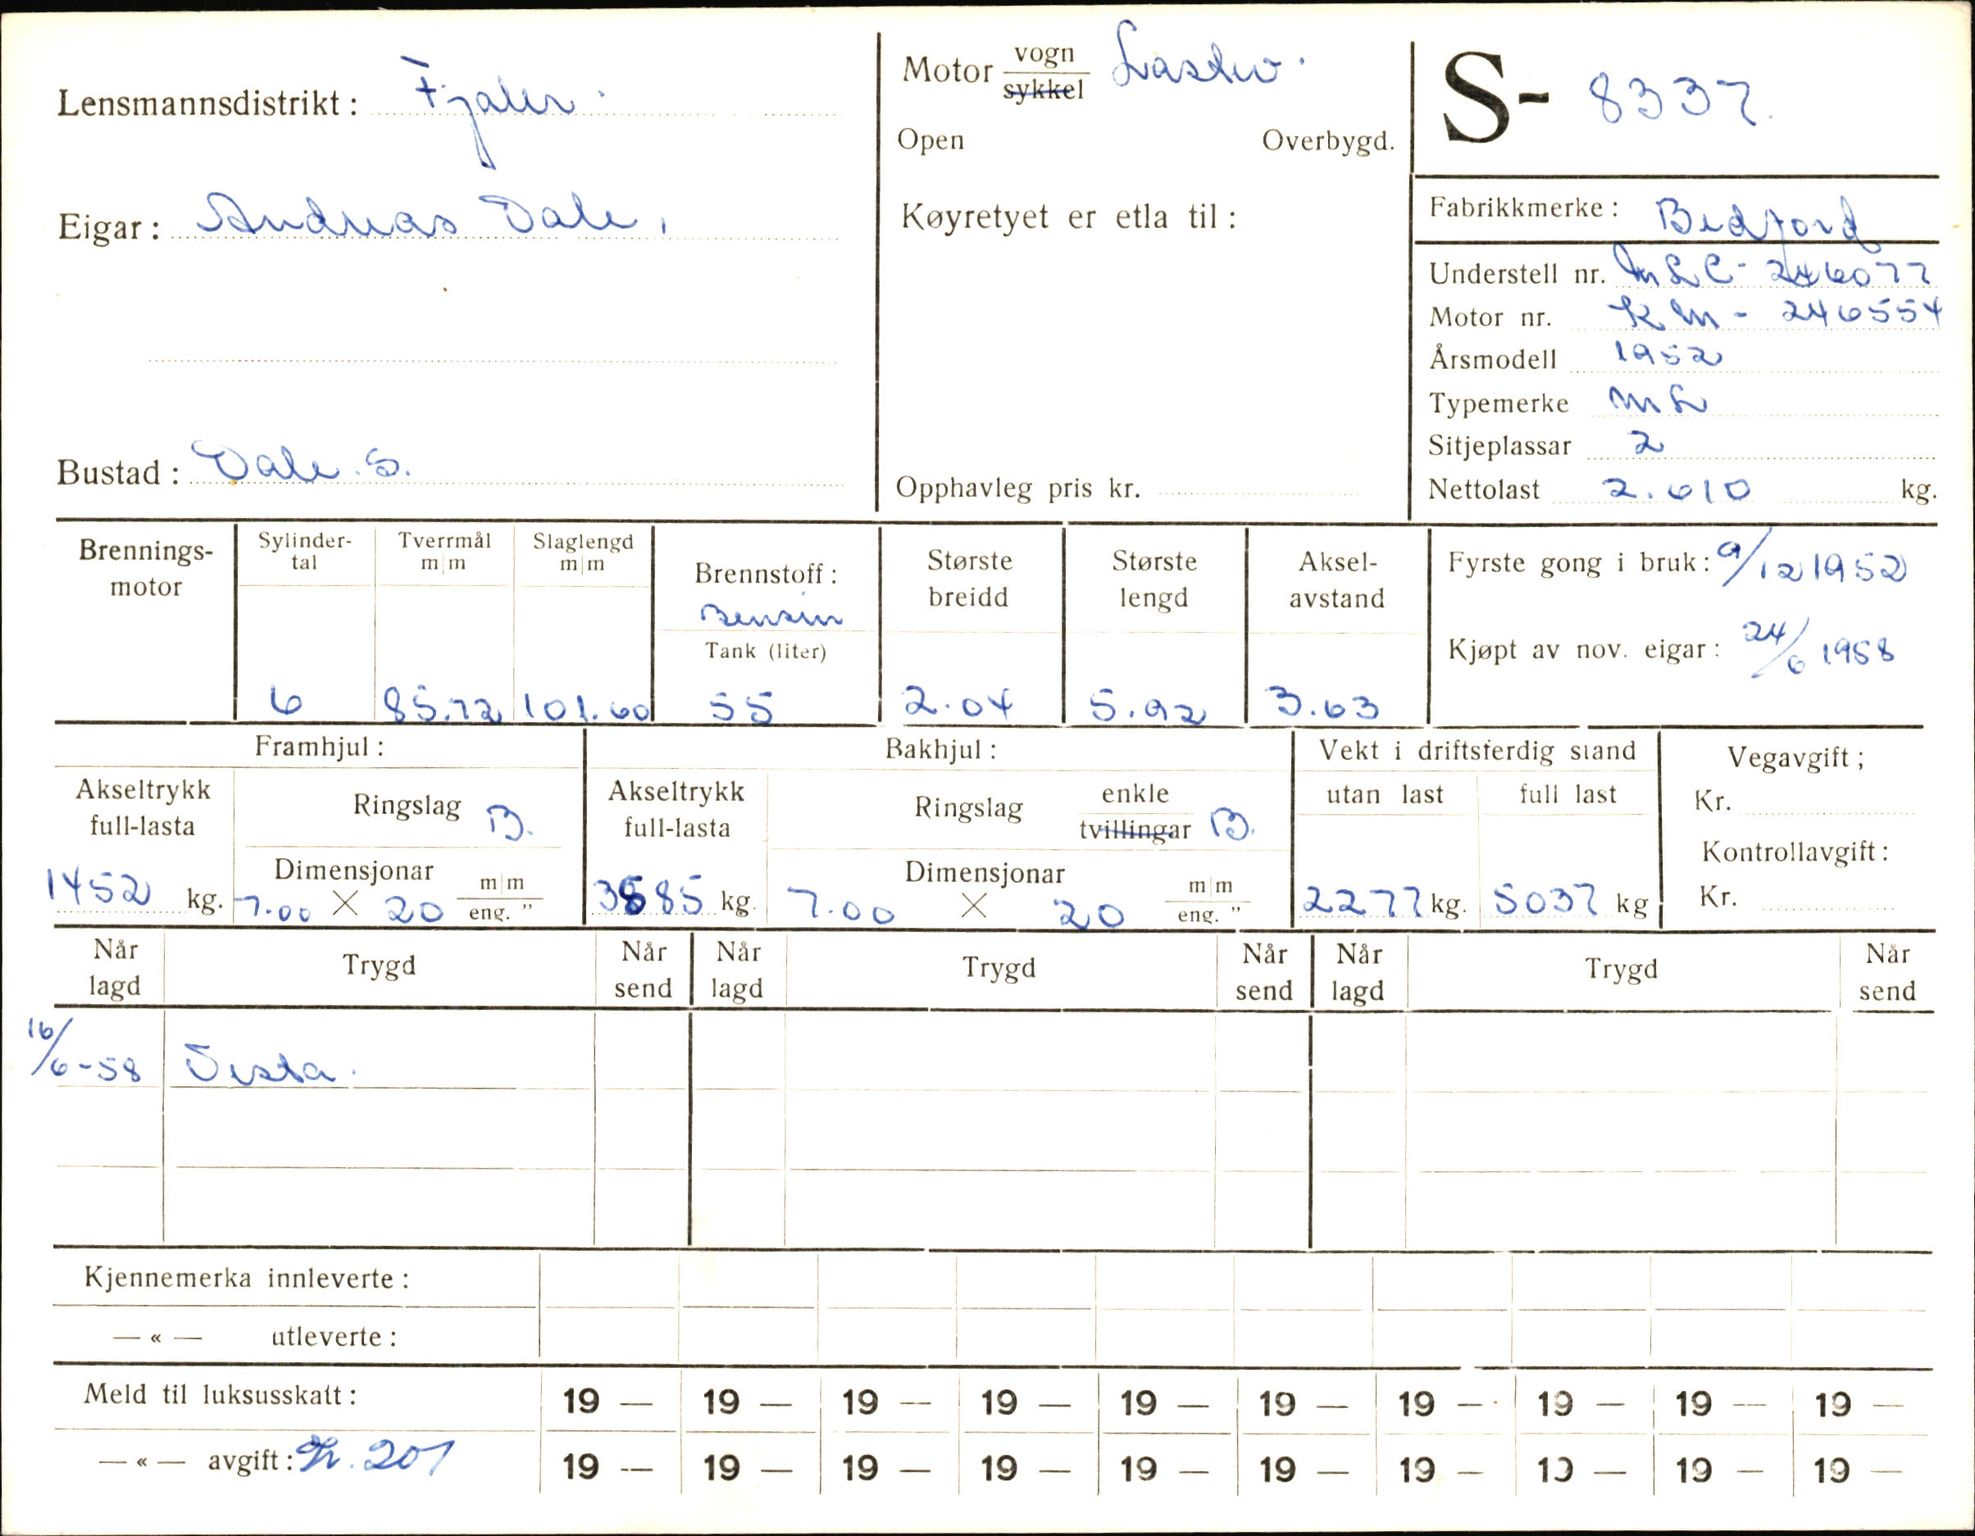 Lensmannsdistrikt: Fjaler.
Eigar: Andreas Dale.
Bustad: Dale. S.
Motor vogn Lastev.
sykkel
Open Overbygd.
Køyretyet er etla til:
Opphavleg pris kr.
S- 8337.
Fabrikkmerke: Bedford
Understell nr. MLC- 246077
Motor nr. KM - 246554
Årsmodell 1952
Typemerke ML
Sitjeplassar 2
Nettolast 2.610 kg.
Brennings-
motor
Sylinder-
tal
6
Tverrmål
m|m
85.72
Slaglengd
m|m
101.60
Brennstoff:
Bensin
Tank (liter)
55
Største
breidd
2.04
Største
lengd
5.92
Aksel-
avstand
3.63
Fyrste gong i bruk: 9/12 1952
Kjøpt av nov. eigar: 24/6 1958
Framhjul:
Akseltrykk
full-lasta
1452 kg.
Ringslag B.
Dimensjonar m|m
7.00 × 20 eng. "
Bakhjul:
Akseltrykk
full-lasta
3585 kg.
Ringslag enkle
tvillingar B.
Dimensjonar m|m
7.00 × 20 eng. "
Vekt i driftsferdig stand
utan last full last
2277 kg. 5037 kg
Vegavgift;
Kr.
Kontrollavgift:
Kr.
Når
lagd Trygd Når
send Når
lagd Trygd Når
send Når
lagd Trygd Når
send
16/6-58 Vesta.
Kjennemerka innleverte:
— « — utleverte:
Meld til luksusskatt: 19 — 19 — 19 — 19 — 19 — 19 — 19 — 19 — 19 — 19 —
— « — avgift: Kr. 201 19 — 19 — 19 — 19 — 19 — 19 — 19 — 19 — 19 — 19 —